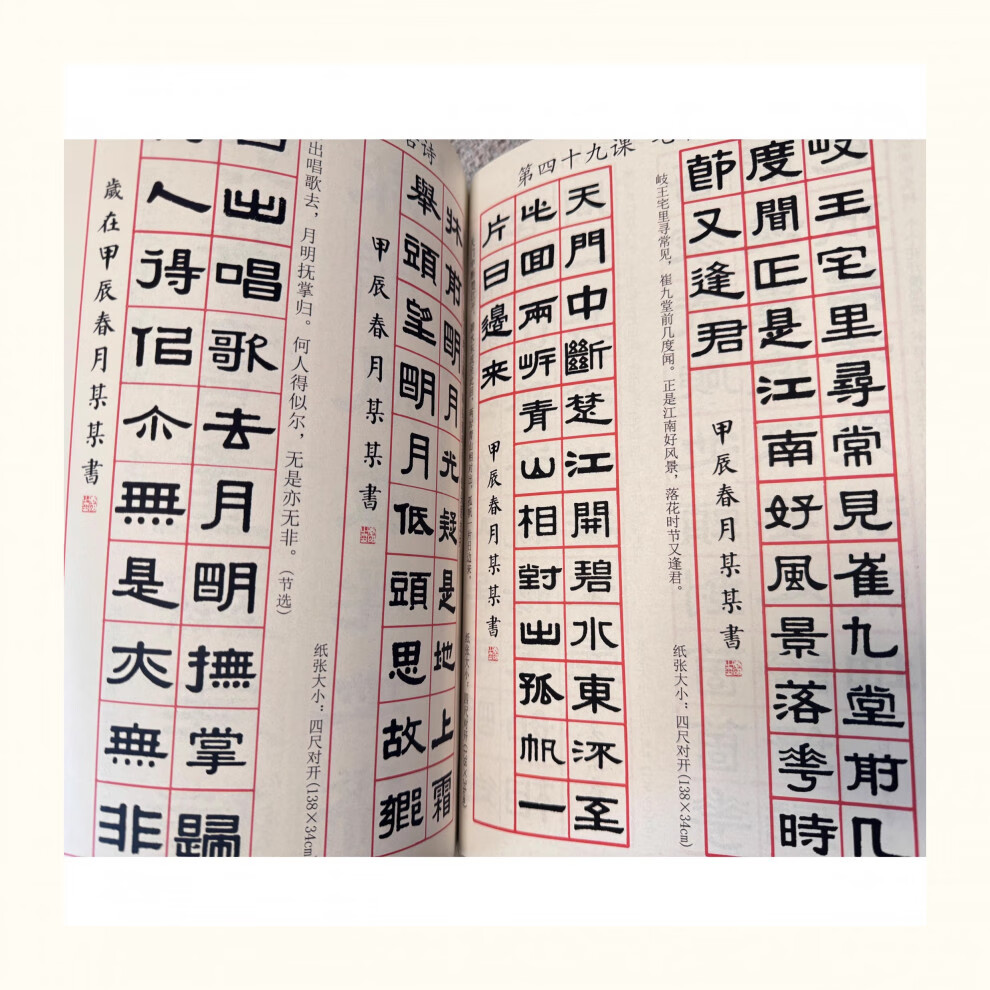 第四十九课
岐王宅里尋常見崔九堂前几
度聞正是江南好風景落花時
節又逢君
甲辰春月某某書
岐王宅里寻常见，崔九堂前几度闻。正是江南好风景，落花时节又逢君。
纸张大小：四尺对开(138×34cm)
天門中斷楚江開碧水東流至
此回兩岸青山相對出孤帆一
片日邊來
甲辰春月某某書
牀前明月光疑是地上霜
舉頭望明月低頭思故鄉
甲辰春月某某書
出唱歌去，月明抚掌归。何人得似尔，无是亦无非。（节选）
纸张大小：四尺对开(138×34cm)
出唱歌去月明撫掌歸
人得佀尒無是亦無非
歲在甲辰春月某某書